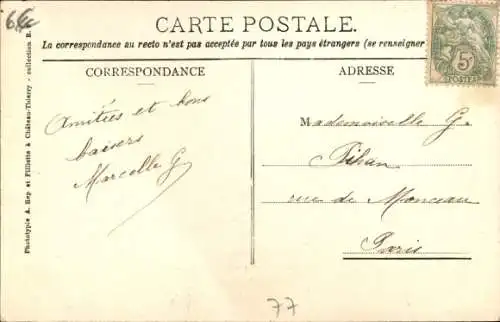 6€
CARTE POSTALE.
La correspondance au recto n'est pas acceptée par tous les pays étrangers (se renseigner
CORRESPONDANCE
ADRESSE
Amitiés et bons
baisers
Marcelle G
Mademoiselle G.
Pihan
rue de Monceau
Paris
77
5c
POSTES
Phototypie A. Rep et Filliette à Château-Thierry - collection R.